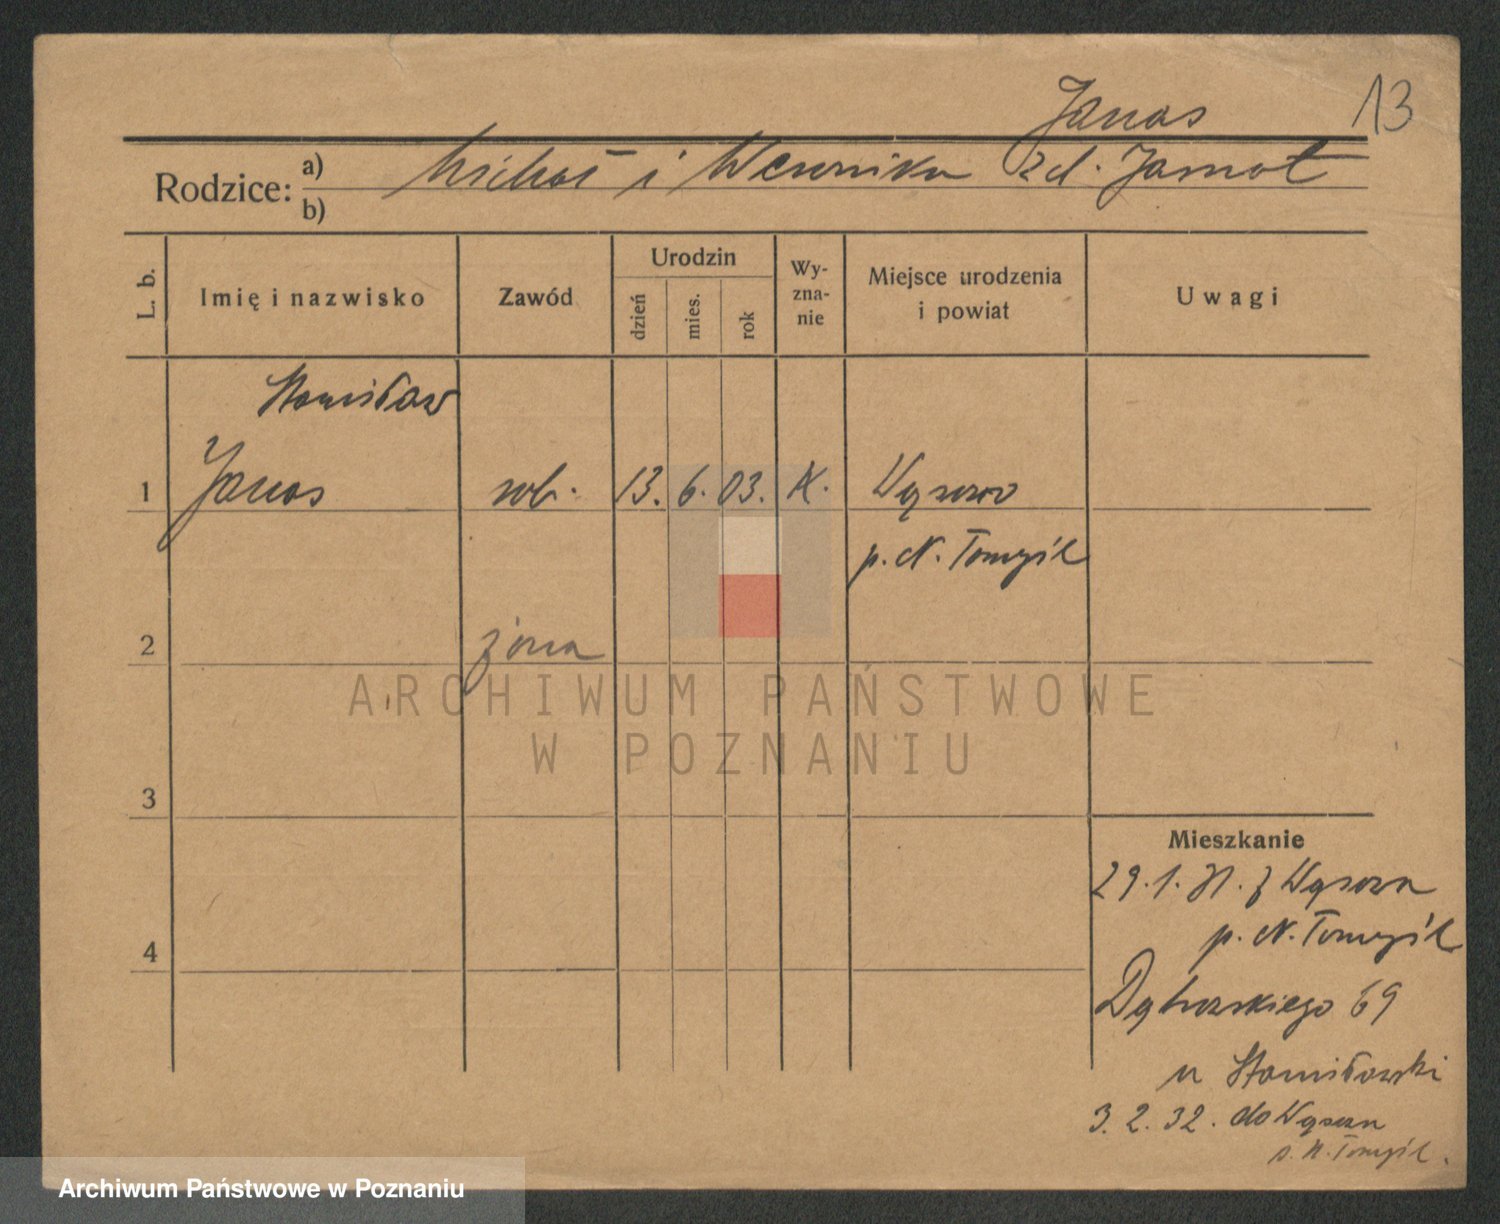 Janas 13
Rodzice: a) Michał i Weronika zd. Jarnot
b)
L. b. Imię i nazwisko Zawód Urodzin dzień mies. rok Wyznanie Miejsce urodzenia i powiat Uwagi
Stanisław
1 Janas rob. 13. 6. 03. K. Wąsowo
p. N. Tomyśl
2 żona
ARCHIWUM PAŃSTWOWE
W POZNANIU
3
Mieszkanie
29.1.31. z Wąsowa
p. N. Tomyśl
4
Dąbrowskiego 69
u Stanisławski
3.2.32. do Wąsowa
p. N. Tomyśl.
Archiwum Państwowe w Poznaniu